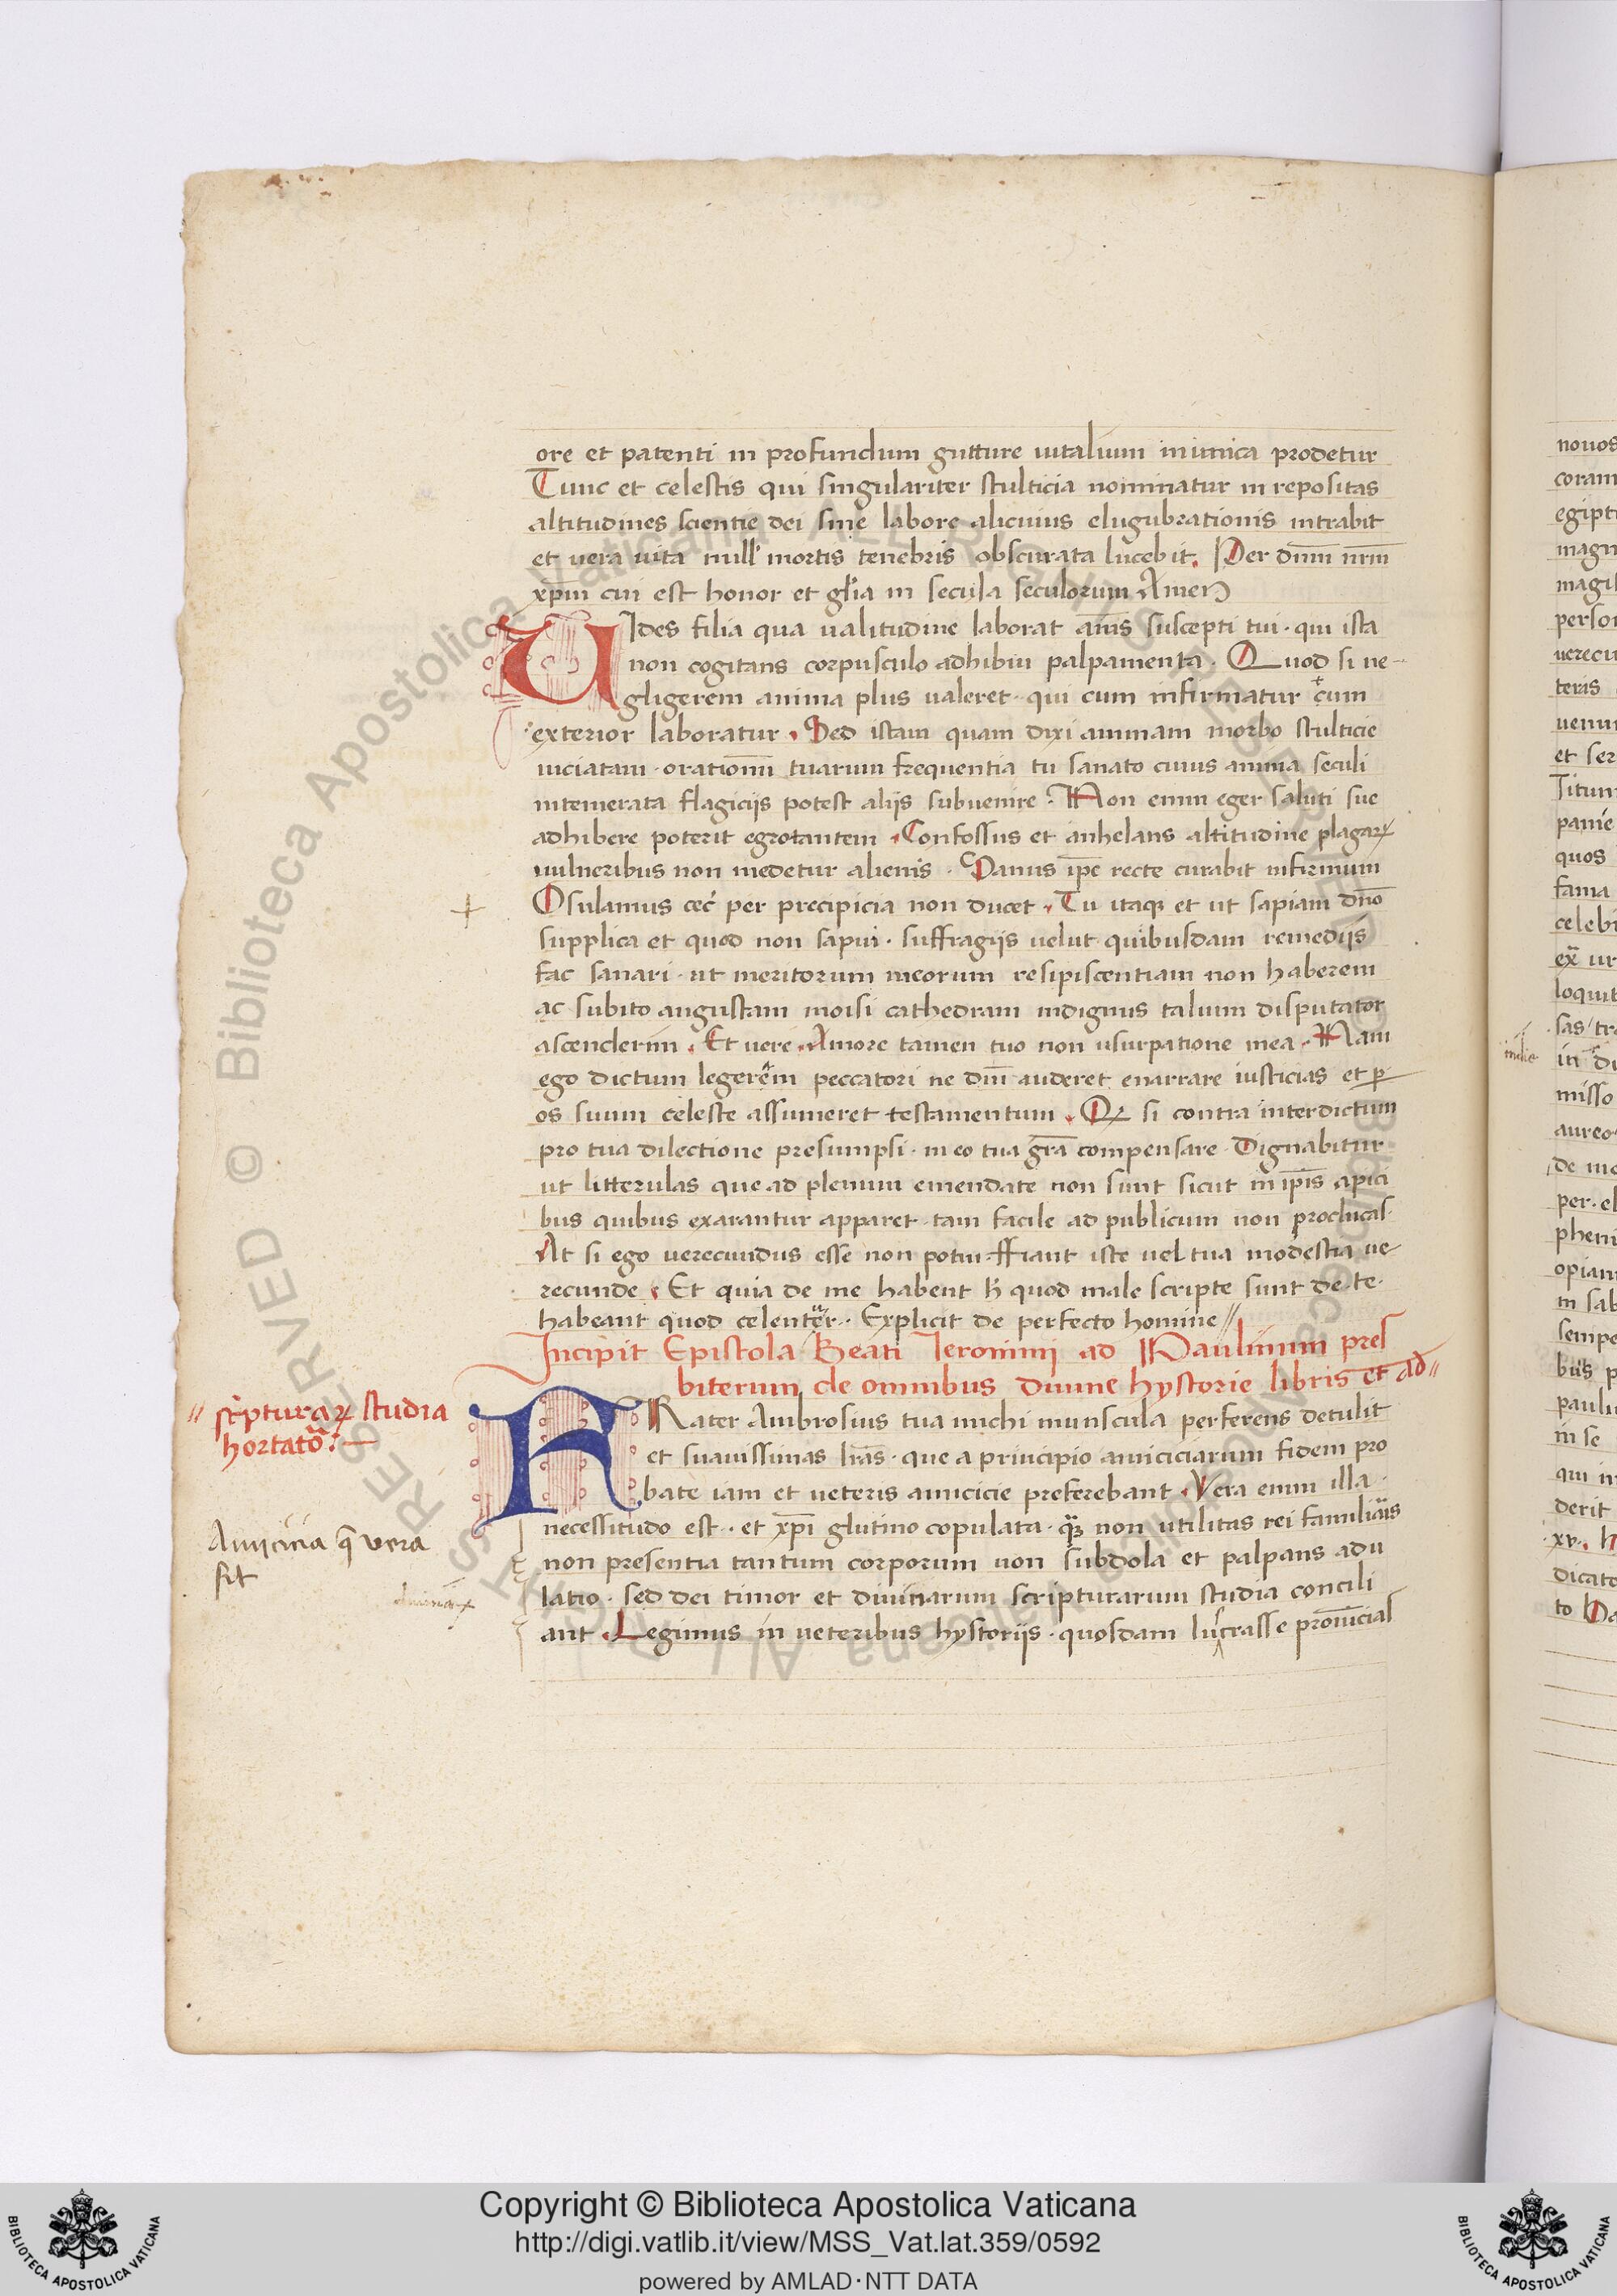 ore et patenti in profundum gutture uitalium inimica prodetur
Tunc et celestis qui singulariter stulticia nominatur in repositas
altitudines scientie dei sine labore alicuius elugubrationis intrabit
et uera uita null' mortis tenebris obscurata lucebit. Per dnm̄ nrm̄
xp̄m cui est honor et gl'ia in secula seculorum Amen
UIdes filia qua ualitudine laborat aīus suscepti tui · qui ista
non cogitans corpusculo adhibui palpamenta · Quod si ne-
gligerem anima plus ualeret · qui cum infirmatur cum
exterior laboratur · Sed istam quam dixi animam morbo stulticie
uiciatam · orationū tuarum frequentia tu sanato cuius anima seculi
intemerata flagicijs potest alijs subuenire · Non enim eger saluti sue
adhibere poterit egrotantem · Confossus et anhelans altitudine plagaꝝ
uulneribus non medetur alienis · Sanus ip̄e recte curabit infirmum
Osulamus cec' per precipicia non ducet · Tu itaqꝫ et ut sapiam dn̄o
supplica et quod non sapui · suffragijs uelut quibusdam remedijs
fac sanari · ut meritorum meorum resipiscentiam non haberem
ac subito angustam moisi cathedram indignus talium disputator
ascenderim · Et uere · Amore tamen tuo non usurpatione mea · Nam
ego dictum legerem peccatori ne dm̄ auderet enarrare iusticias et ꝑ
os suum celeste assumeret testamentum · Qꝫ si contra interdictum
pro tua dilectione presumpsi · in eo tua gr̄a compensare Dignabitur
ut litterulas que ad plenum emendate non sunt sicut in ip̄is apici
bus quibus exarantur apparet · tam facile ad publicum non producas ·
At si ego uerecundus esse non potui · ffiant iste uel tua modestia ue-
recunde · Et quia de me habent h' quod male scripte sunt de te ·
habeant quod celentur · Explicit de perfecto homine //
Incipit Epistola Beati Ieronimi ad Paulinum pres
biterum de omnibus diuine hystorie libris et ad //
// scripturaꝝ studia
hortato͞ ·
FRater Ambrosius tua michi munscula perferens detulit
et suauissimas lr̄as · que a principio amiciciarum fidem pro
bate iam et ueteris amicicie preferebant · Vera enim illa
necessitudo est · et xp̄i glutino copulata · qꝫ non utilitas rei familiaris
Amicicia q̄ vera
sit
non presentia tantum corporum non subdola et palpans adu
latio · sed dei timor et diuinarum scripturarum studia concili
ant · Legimus in ueteribus hystorijs · quosdam lustrasse prouincias
novos
coram
egipt
magn
magis
person
uerecu
teris
uenu
et ser
Titum
quos
fama
celeb
loquit
misso
aureo
de me
per · el
phem
opiam
in sab
sempe
bus p
pauli
in se
qui in
derit
xv · h
dicato
to Da
© Biblioteca Apostolica Vaticana ALL RIGHTS RESERVED
Copyright © Biblioteca Apostolica Vaticana
http://digi.vatlib.it/view/MSS_Vat.lat.359/0592
powered by AMLAD·NTT DATA
BIBLIOTECA APOSTOLICA VATICANA
BIBLIOTECA APOSTOLICA VATICANA